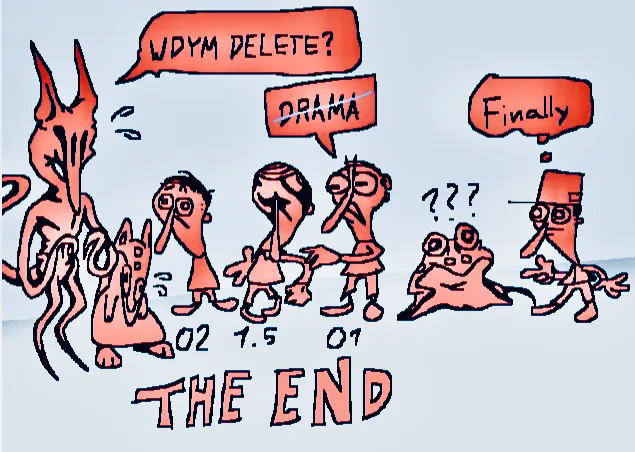 WDYM DELETE?
DRAMA
Finally
???
02 1.5 01
THE END